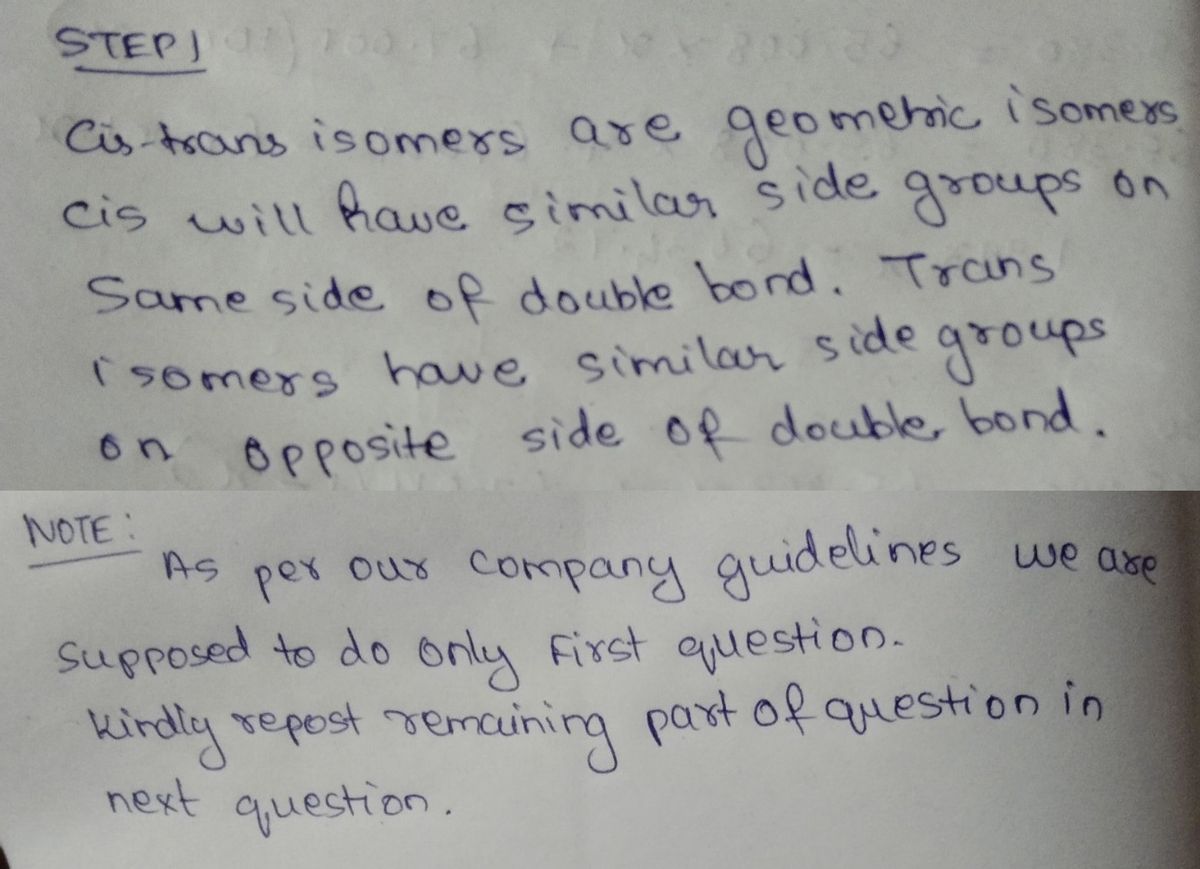 STEP 1
Cis-trans isomers are geometric isomers.
cis will have similar side groups on
Same side of double bond. Trans
isomers have similar side groups
on opposite side of double bond.
NOTE:
As per our company guidelines we are
supposed to do only first question.
kindly repost remaining part of question in
next question.